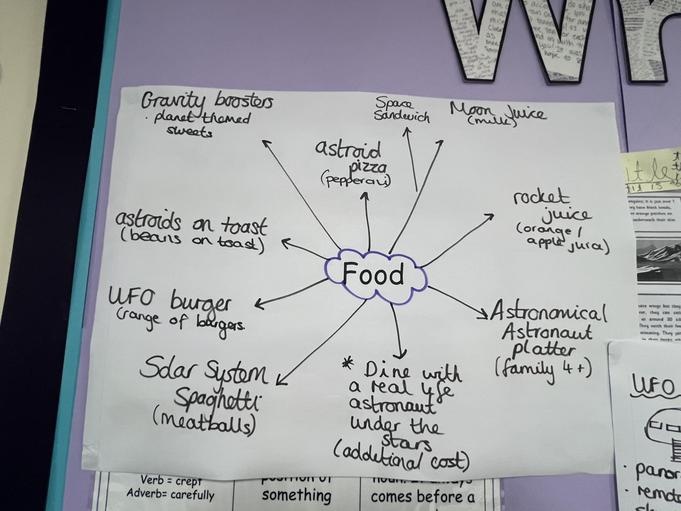 W
Gravity boosters
· planet themed
sweets
Space
Sandwich
Moon Juice
(milk)
astroid
pizza
(pepperoni)
rocket
juice
(orange /
apple juice)
astroids on toast
(beans on toast)
Food
UFO burger
(range of burgers
Astronomical
Astronaut
platter
(family 4+)
Solar System
Spaghetti
(meatballs)
* Dine with
a real life
astronaut
under the
stars
(additional cost)
UFO
Verb = crept
Adverb= carefully
something
comes before a